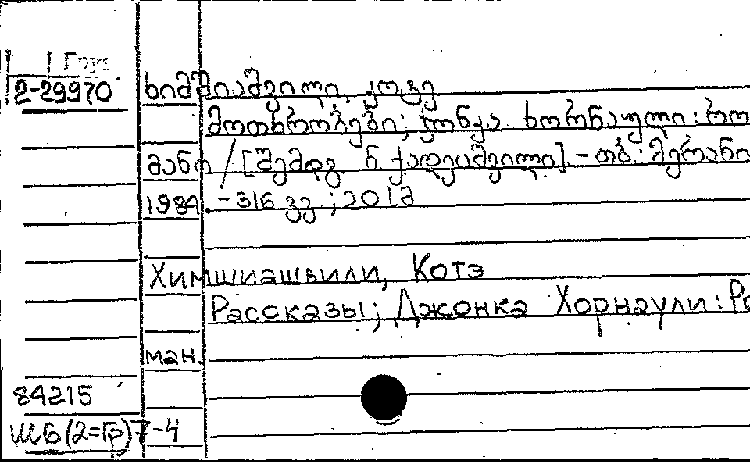 2-29970 ხიმშიაშვილი, კოტე
მოთხრობები; ჯონკა ხორნაული: რო
მანი / [შემდგ. ნ. ქადეიშვილი]. - თბ.: მერანი
1984. - 316 გვ.; 20 სმ
Химшиашвили, Котэ
Рассказы; Джонка Хорнаули: Ро
ман.
84215
ШБ(2=Гр)7-4